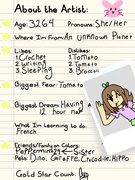 About the Artist:
Age: 3264 Pronouns: She/Her
Where I'm From: An Unknown Planet
Likes: Dislikes:
1. Crochet 1. Tomato
2. Writing 2. Tomato
3. Sleeping 3. Broccoli
Biggest Fear: Tomato
Biggest Dream: Having a
12 hour nap
What I'm Learning to do:
French
Friends/Family or Colors:
Peppermint24 ← Sister
Pals: Dino, Giraffe, Crocodile, Hippo
Gold Star Count: